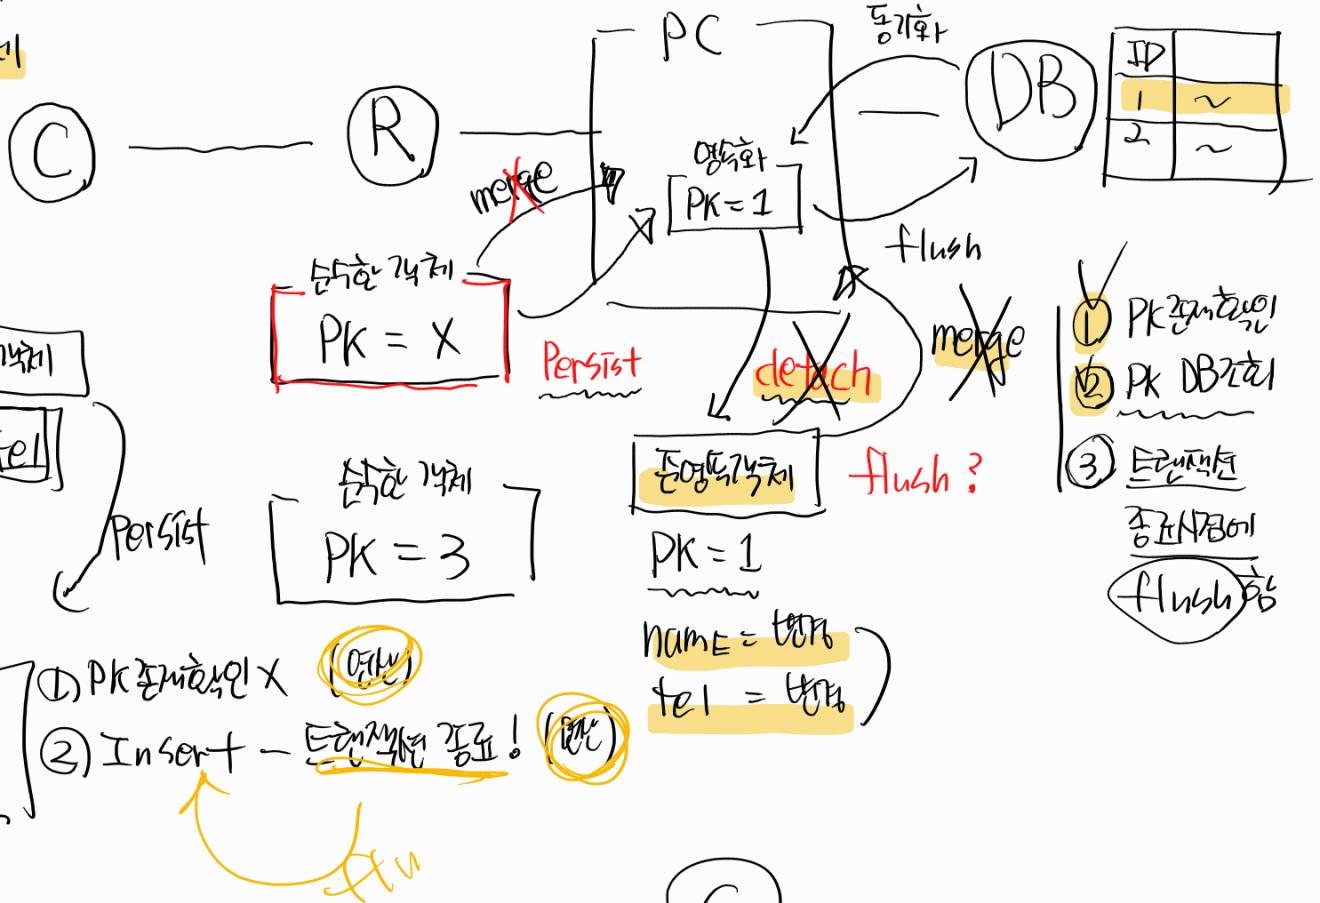 PC
동기화
DB
ID
1 ~
2 ~
C
R
merge
영속화
PK = 1
flush
순수한 객체
PK = X
Persist
detach
merge
① PK존재확인
② PK DB조회
③ 트랜잭션
종료시점에
flush함
객체
tel
Persist
순수한 객체
PK = 3
준영속객체
flush?
PK = 1
name = 변경
tel = 변경
① PK존재확인 X (연산)
② Insert – 트랜잭션 종료! (연산)
flu
C